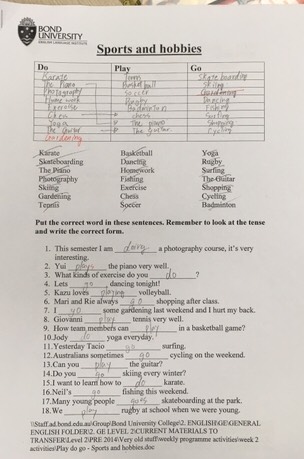 BOND
UNIVERSITY
ENGLISH LANGUAGE INSTITUTE
Sports and hobbies
Do Play Go
Karate Tennis Skateboarding
The Piano Basketball Skiing
Photography Soccer Gardening
Home work Rugby Dancing
Exercise Badminton Fishing
Chess chess Surfing
Yoga The piano Shopping
The Guitar The guitar Cycling
Gardening
Karate Basketball Yoga
Skateboarding Dancing Rugby
The Piano Homework Surfing
Photography Fishing The Guitar
Skiing Exercise Shopping
Gardening Chess Cycling
Tennis Soccer Badminton
Put the correct word in these sentences. Remember to look at the tense
and write the correct form.
1. This semester I am doing a photography course, it's very
interesting.
2. Yui plays the piano very well.
3. What kinds of exercise do you do ?
4. Lets go dancing tonight!
5. Kazu loves playing volleyball.
6. Mari and Rie always go shopping after class.
7. I go some gardening last weekend and I hurt my back.
8. Giovanni play tennis very well.
9. How team members can play in a basketball game?
10. Jody do yoga everyday.
11. Yesterday Tacio go surfing.
12. Australians sometimes go cycling on the weekend.
13. Can you play the guitar?
14. Do you go skiing every winter?
15. I want to learn how to do karate.
16. Neil's go fishing this weekend.
17. Many young people goes skateboarding at the park.
18. We play rugby at school when we were young.
\\Staff.ad.bond.edu.au\Group\Bond University College\2. ENGLISH\GE\GENERAL
ENGLISH FOLDER\2. GE LEVEL 2\CURRENT MATERIALS TO
TRANSFER\Level 2\PRE 2014\Very old stuff\weekly programme activities\week 2
activities\Play do go - Sports and hobbies.doc